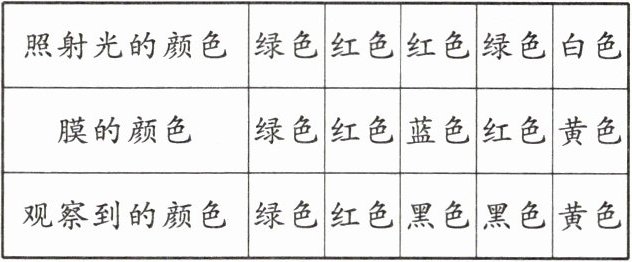 照射光的颜色 绿色 红色 红色 绿色 白色
膜的颜色 绿色 红色 蓝色 红色 黄色
观察到的颜色 绿色 红色 黑色 黑色 黄色